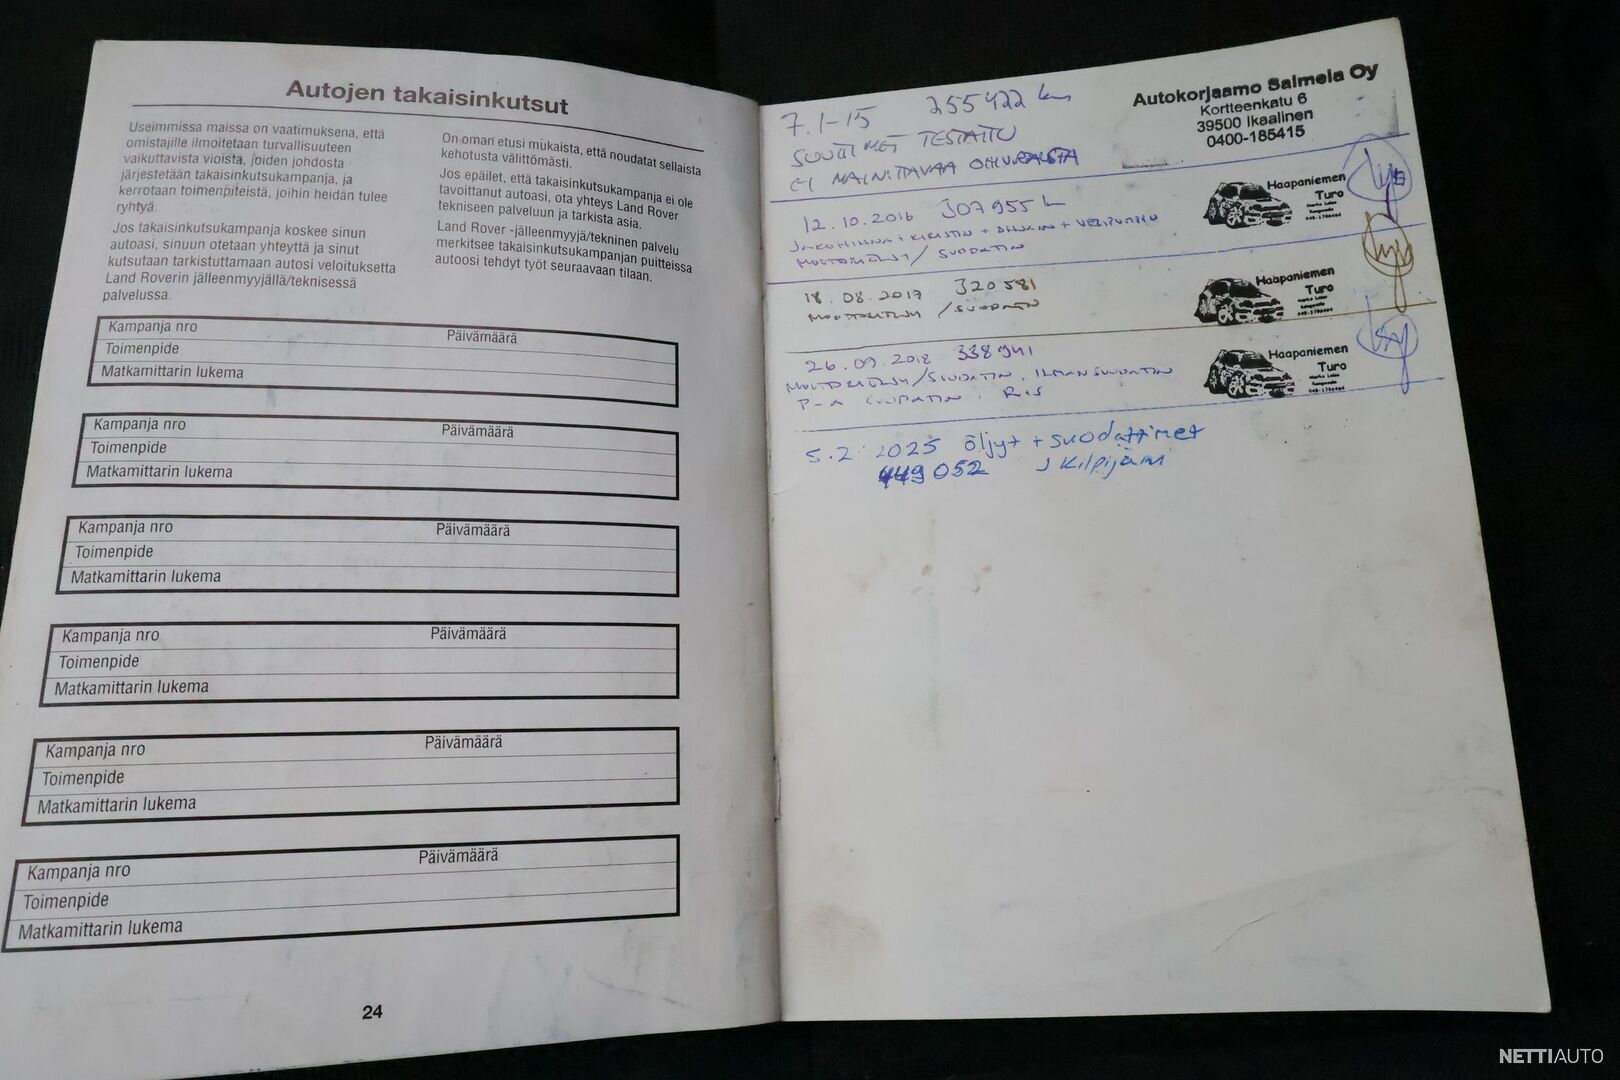 Autojen takaisinkutsut
Useimmissa maissa on vaatimuksena, että
omistajille ilmoitetaan turvallisuuteen
vaikuttavista vioista, joiden johdosta
järjestetään takaisinkutsukampanja, ja
kerrotaan toimenpiteistä, joihin heidän tulee
ryhtyä.
Jos takaisinkutsukampanja koskee sinun
autoasi, sinuun otetaan yhteyttä ja sinut
kutsutaan tarkistuttamaan autosi veloituksetta
Land Roverin jälleenmyyjällä/teknisessä
palvelussa.
On oman etusi mukaista, että noudatat sellaista
kehotusta välittömästi.
Jos epäilet, että takaisinkutsukampanja ei ole
tavoittanut autoasi, ota yhteys Land Rover
tekniseen palveluun ja tarkista asia.
Land Rover -jälleenmyyjä/tekninen palvelu
merkitsee takaisinkutsukampanjan puitteissa
autoosi tehdyt työt seuraavaan tilaan.
Kampanja nro Päivämäärä
Toimenpide
Matkamittarin lukema
Kampanja nro Päivämäärä
Toimenpide
Matkamittarin lukema
Kampanja nro Päivämäärä
Toimenpide
Matkamittarin lukema
Kampanja nro Päivämäärä
Toimenpide
Matkamittarin lukema
Kampanja nro Päivämäärä
Toimenpide
Matkamittarin lukema
Kampanja nro Päivämäärä
Toimenpide
Matkamittarin lukema
24
7.1-15 255422 km
SUUTTIMET TESTATTU
EI MAINITTAVAA
Autokorjaamo Salmela Oy
Kortteenkatu 6
39500 Ikaalinen
0400-185415
12.10.2016 307955
JAKOHIHNA + KIRISTIN + OHJAIN + VESIPUMPPU
MOOTTORIÖLJY / SUODATIN
Haapaniemen
Turo
18.08.2017 320581
MOOTTORIÖLJY / SUODATIN
Haapaniemen
Turo
26.09.2018 338941
MOOTTORIÖLJY / SUODATIN. ILMANSUODATIN
P-A SUODATIN.
Haapaniemen
Turo
5.2 2025 öljyt + suodattimet
449052 J Kilpijärvi
NETTIAUTO